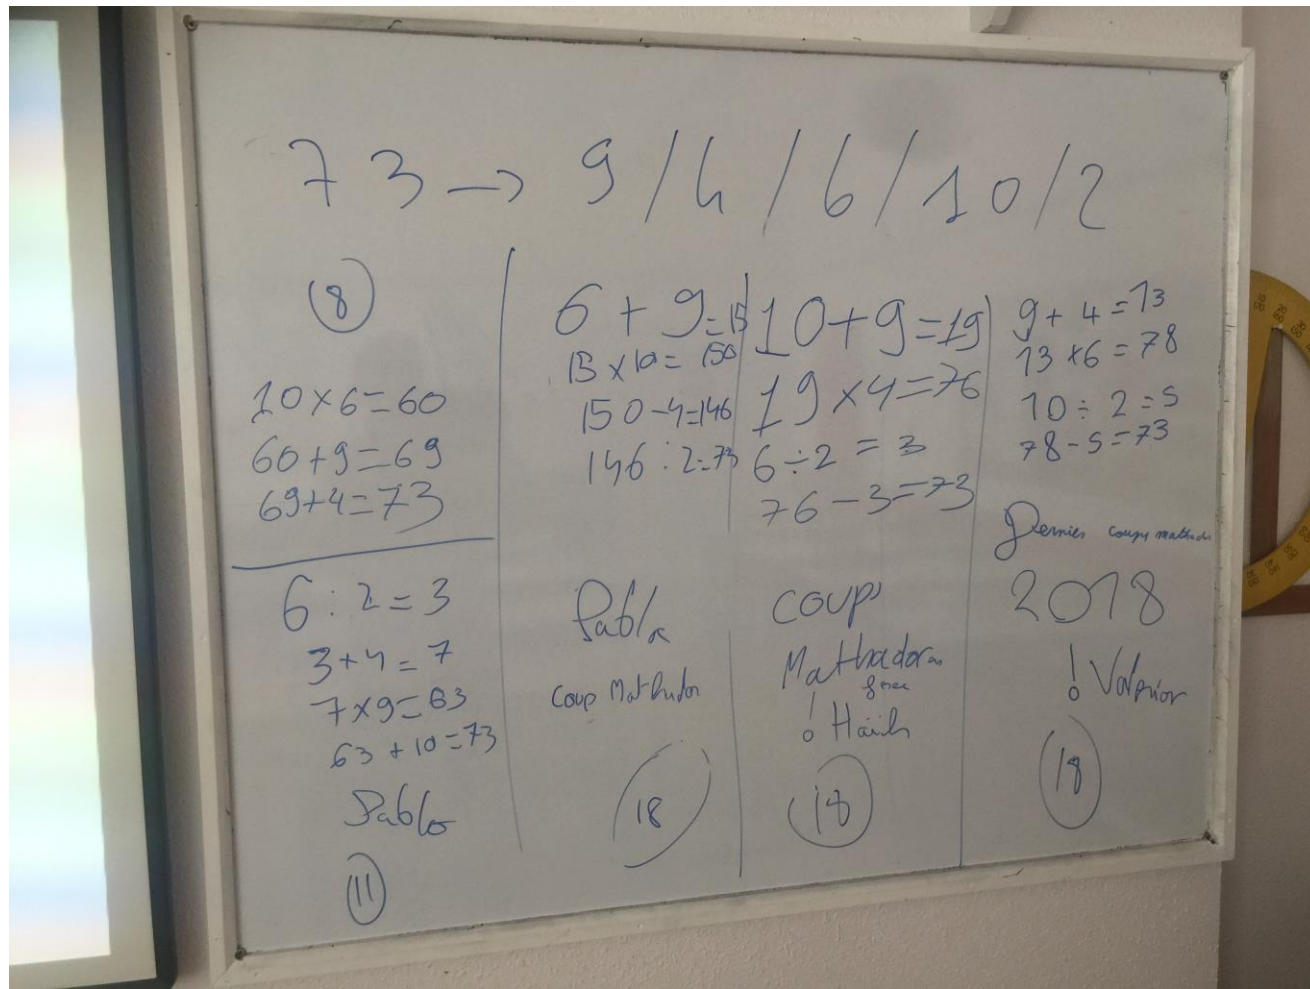 73 → 9/4/6/10/2
8
10×6=60
60+9=69
69+4=73
6:2=3
3+4=7
7×9=63
63+10=73
Pablo
11
6+9=15
15×10=150
150-4=146
146:2=73
Pablo
Coup Mathador
18
10+9=19
19×4=76
6÷2=3
76-3=73
coup
Mathador
!
18
9+4=13
13×6=78
10÷2=5
78-5=73
Dernier coup mathador
2018
!
18